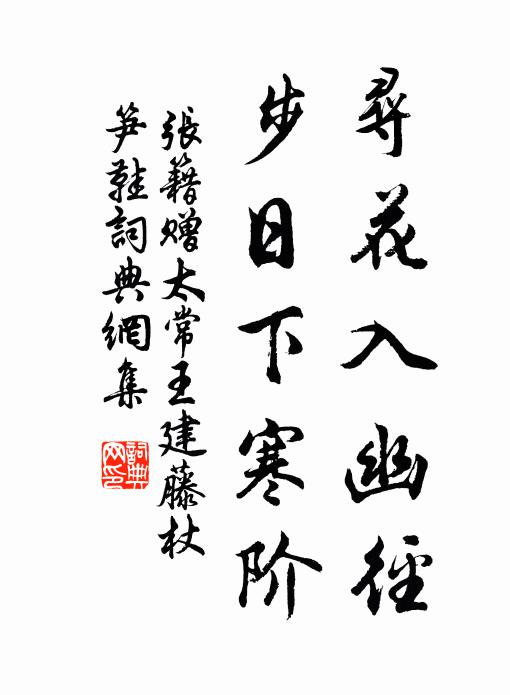 尋花入幽徑
步日下寒阶
張籍贈太常王建藤杖
笋鞋詞典網集
詞典
网印